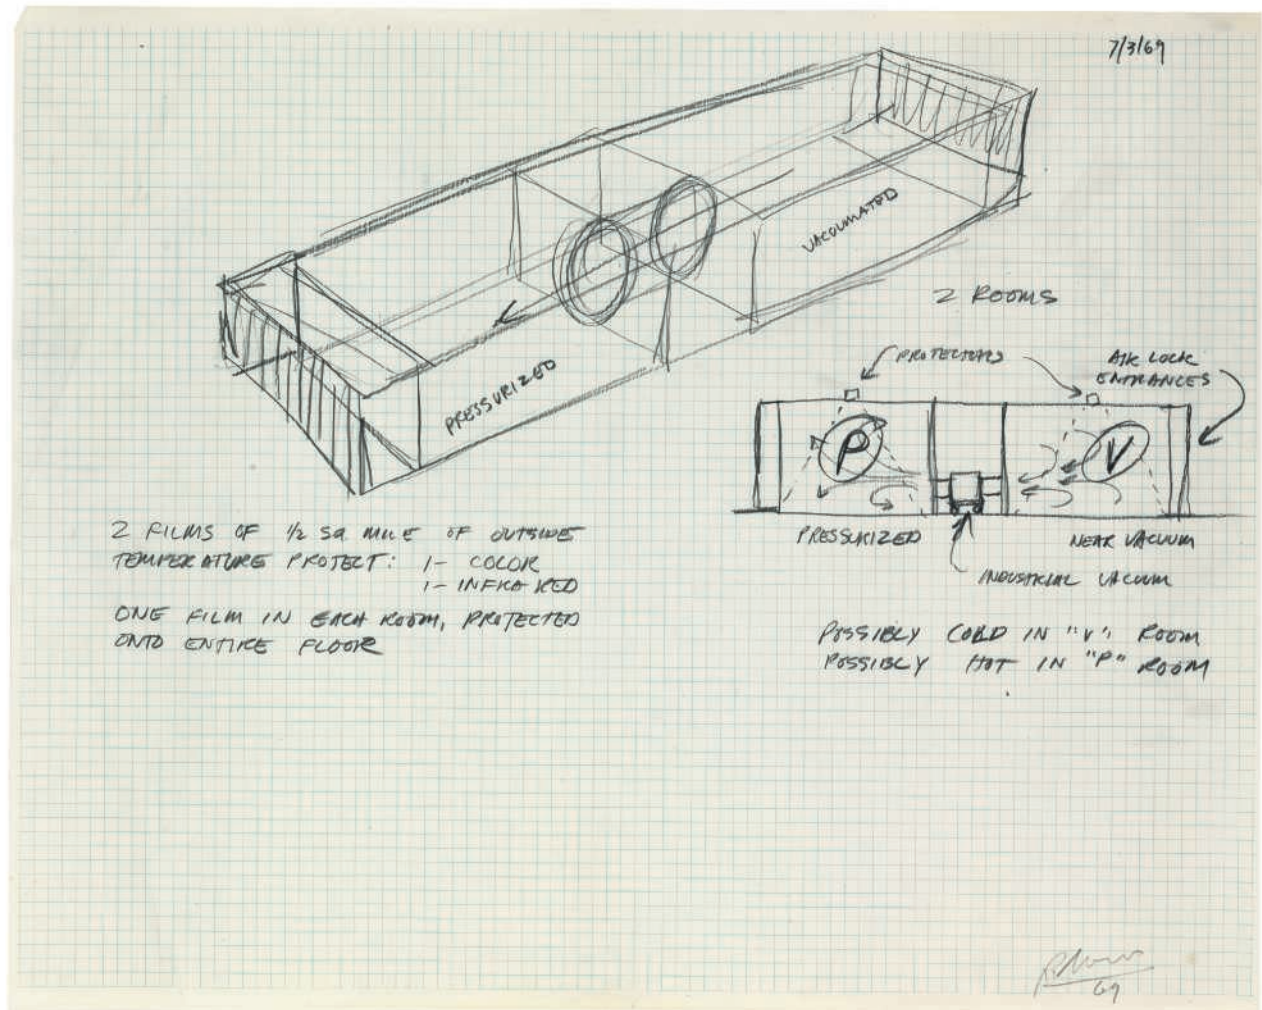 7/3/69
VACUUMATED
PRESSURIZED
2 ROOMS
PROTECTORS
AIR LOCK
ENTRANCES
P
V
PRESSURIZED
NEAR VACUUM
INDUSTRIAL VACUUM
2 FILMS OF 1/2 SQ MILE OF OUTSIDE
TEMPERATURE PROTECT: 1- COLOR
1- INFRA RED
ONE FILM IN EACH ROOM, PROTECTED
ONTO ENTIRE FLOOR
POSSIBLY COLD IN "V" ROOM
POSSIBLY HOT IN "P" ROOM
69